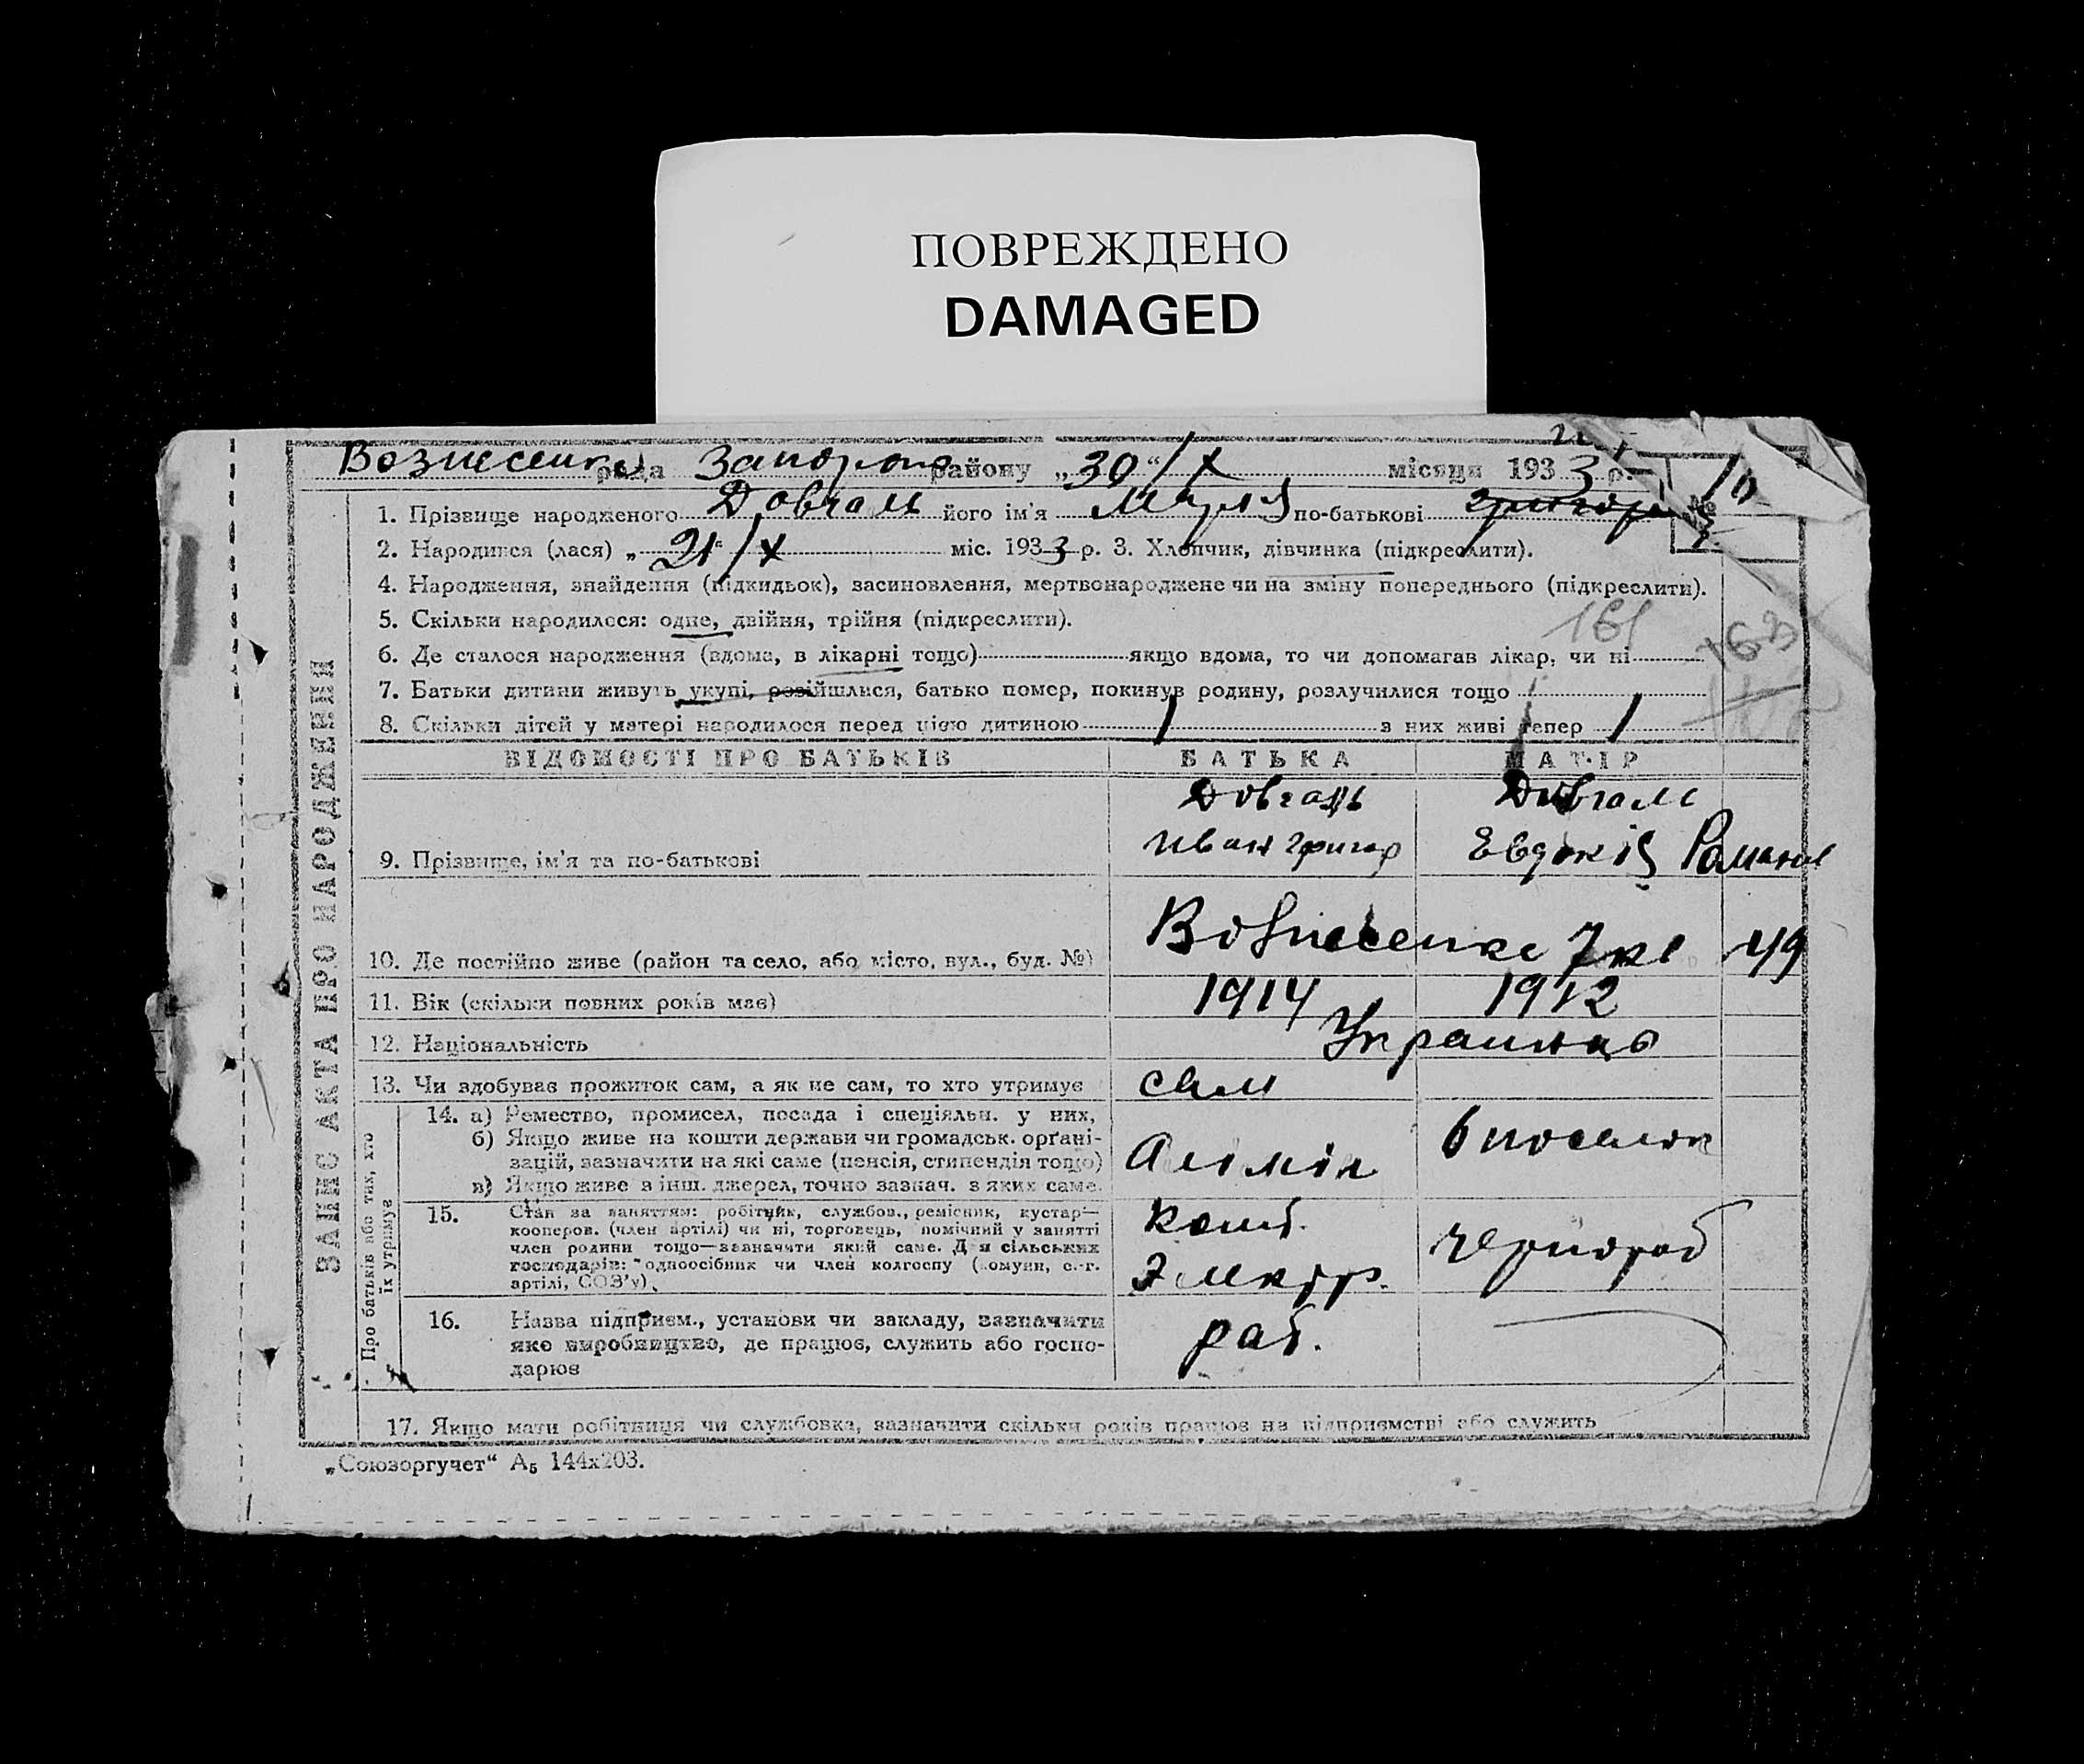 ПОВРЕЖДЕНО
DAMAGED
Вознесенка рада Запоріж району „30“/X місяця 1933 р.
№ 16
1. Прізвище народженого Довгаль його ім'я Марія по-батькові Григор
2. Народився (лася) „21“/X міс. 1933 р. 3. Хлопчик, дівчинка (підкреслити).
4. Народження, знайдення (підкидьок), засиновлення, мертвонароджене чи на зміну попереднього (підкреслити).
5. Скільки народилося: одне, двійня, трійня (підкреслити).
161
163
6. Де сталося народження (вдома, в лікарні тощо) якщо вдома, то чи допомагав лікар, чи ні
7. Батьки дитини живуть укупі, розійшлися, батько помер, покинув родину, розлучилися тощо
8. Скільки дітей у матері народилося перед цією дитиною 1 з них живі тепер 1
ЗАПИС АКТА ПРО НАРОДЖЕННЯ
ВІДОМОСТІ ПРО БАТЬКІВ БАТЬКА МАТІР
Довгаль Довгаль
9. Прізвище, ім'я та по-батькові Иван Григор Евдокія Роман
10. Де постійно живе (район та село, або місто, вул., буд. №) Вознесенка 7 кв 49
11. Вік (скільки повних років має) 1914 1912
12. Національність Украинць
13. Чи здобуває прожиток сам, а як не сам, то хто утримує сам
Про батьків або тих, хто їх утримує
14. а) Ремество, промисел, посада і спеціяльн. у них,
б) Якщо живе на кошти держави чи громадськ. орґані-
зацій, зазначити на які саме (пенсія, стипендія тощо)
в) Якщо живе з інш. джерел, точно зазнач. з яких саме.
15. Стан за заняттям: робітник, службов., ремісник, кустар—
кооперов. (член артілі) чи ні, торговець, помічний у занятті
член родини тощо—зазначити який саме. Для сільських
господарів: одноосібник чи член колгоспу (комуни, с.-г.
артілі, СОЗ'у).
чернороб
16. Назва підприєм., установи чи закладу, зазначити
яке виробництво, де працює, служить або госпо-
дарює
раб.
17. Якщо мати робітниця чи службовка, зазначити скільки років працює на підприємстві або служить
„Союзоргучет“ А5 144x203.